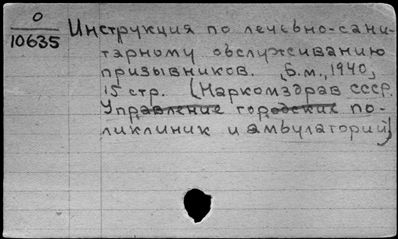 О
10635
Инструкция по лечебно-сани-
тарному обслуживанию
призывников. [Б.м., 1940,
15 стр. (Наркомздрав СССР.
Управление городских по-
ликлиник и амбулаторий)